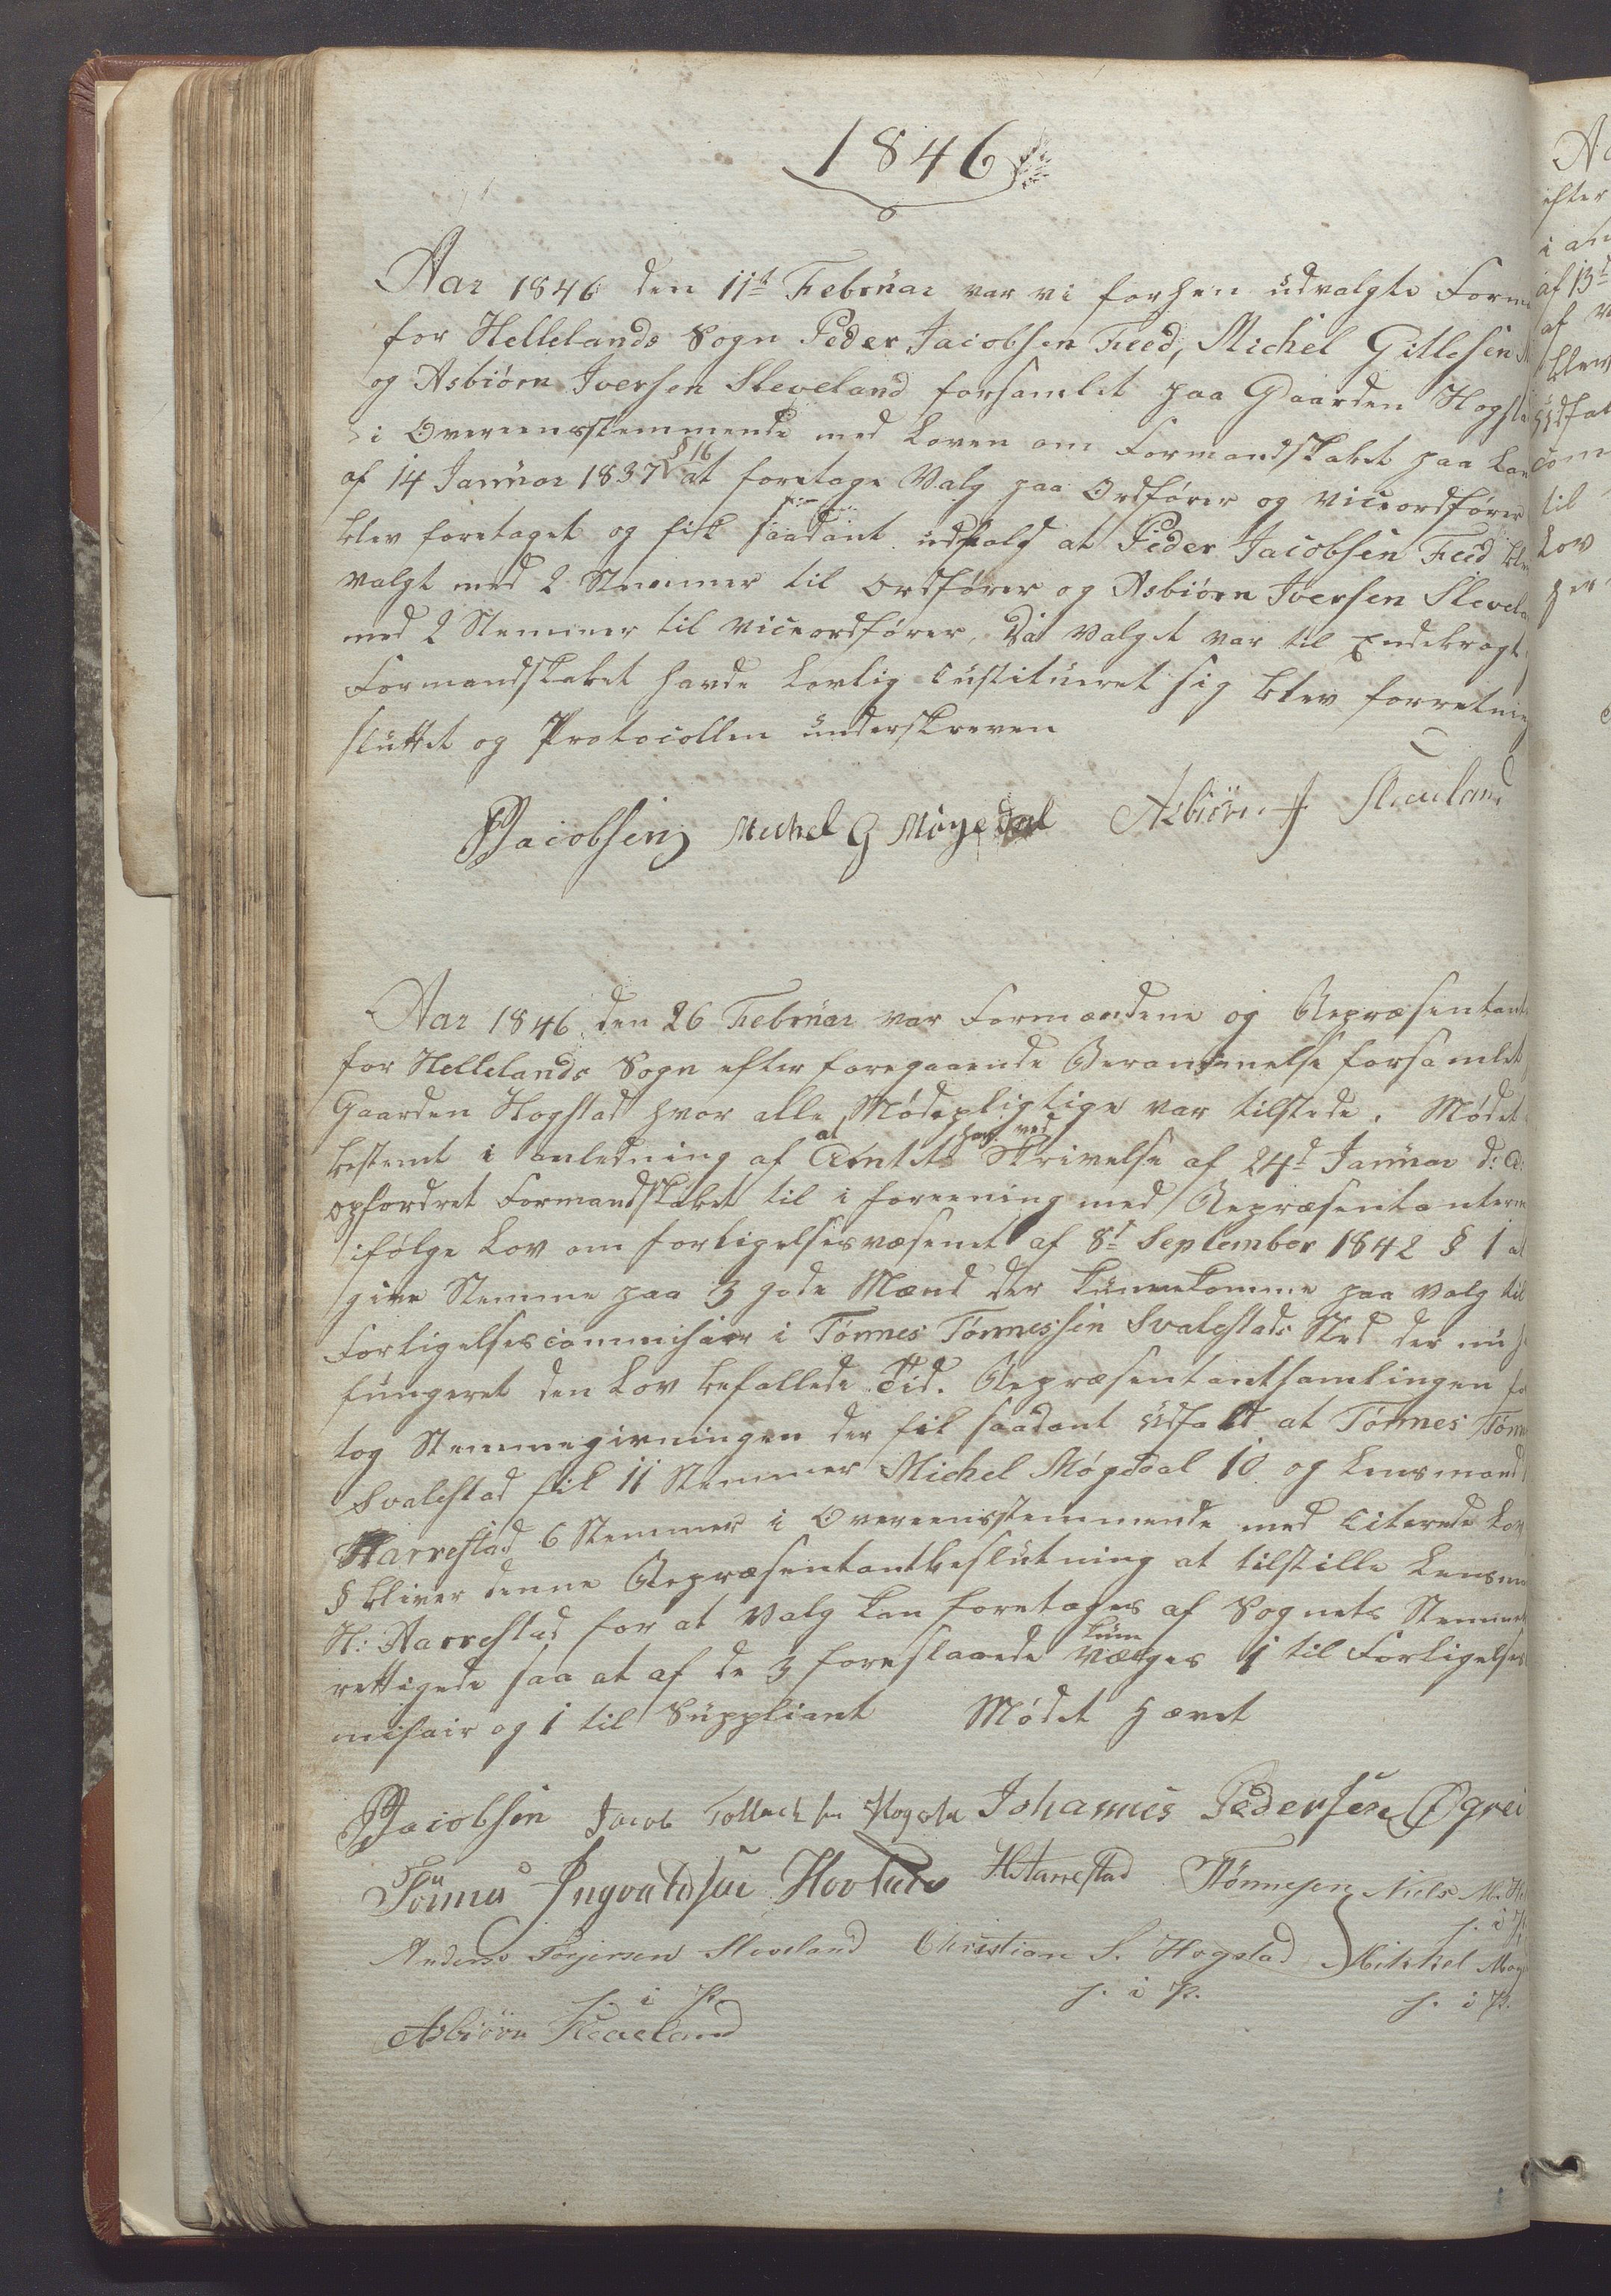 1846
Aar 1846 den 11t Februar var vi forhen udvalgte Form
for Hellelands Sogn Peder Jacobsen Feed, Michel Gillesen
og Asbiørn Iversen Sleveland forsamlet paa Gaarden Hogsta
i Overeensstemmende med Loven om Formandskabet paa Lan
af 14 Januar 1837 § 16 at foretage Valg paa Ordfører og viceordfører
blev foretaget og fik saadant udfald at Peder Jacobsen Feed ble
valgt med 2 Stemmer til Ordfører og Asbiørn Iversen Slevela
med 2 Stemmer til viceordfører, Da Valget var til Endebragt
Formandskabet havde Lovlig Custitueret sig blev forretning
sluttet og Protocollen underskreven
PJacobsen Michel G Møgedal Asbiørn I Sleveland
Aar 1846 den 26 Februar var Formændene og Repræsentant
for Hellelands Sogn efter foregaaende Berammelse forsamlet
Gaarden Hogstad hvor alle Mødepligtige var tilstede. Mødet
bestemt i anledning af at Amtet har ved Skrivelse af 24d Januar d: A:
opfordret Formandskabet til i foreening med Repræsentantern
ifølge Lov om forligelsesvæsenet af 8t September 1842 § 1 at
give Stemme paa 3 gode Mænd der kunne komme paa valg til
Forligelsescommisair i Tønnes Tønnessen Svalestads Sted der nu h
fungeret den Lov befallede Tid. Repræsentantsamlingen fo
tog Stemmegivningen der fik saadant Udfald at Tønnes Tønn
Svalestad fik 11 Stemmer Michel Møgedal 10 og Lensmand
Harrestad 6 Stemmer i Overeensstemmende med Citerede Lov
§ bliver denne Repræsentantbeslutning at tilstille Lensm
H: Aarrestad for at valg kan foretages af Sognets Stemme
rettigede saa at af de 3 foreslaaede kun vælges 1 til Forligelses
misair og 1 til Suppliant Mødet Hævet
PJacobsen Jacob Tollach sen Hogsta Johannes Pedersen Øgrei
Tønnes Ingvaldsen Hovland HAarrestad TTønnesen Niels M. He
f. i P.
Anders Torjersen Sleveland Christian S. Hogstad Mikkel Mog
f. i P. f. i P. f. i P.
Asbiørn Sleveland
A
efter
i an
af 13d
af
blev
Udfal
com
til
Lov